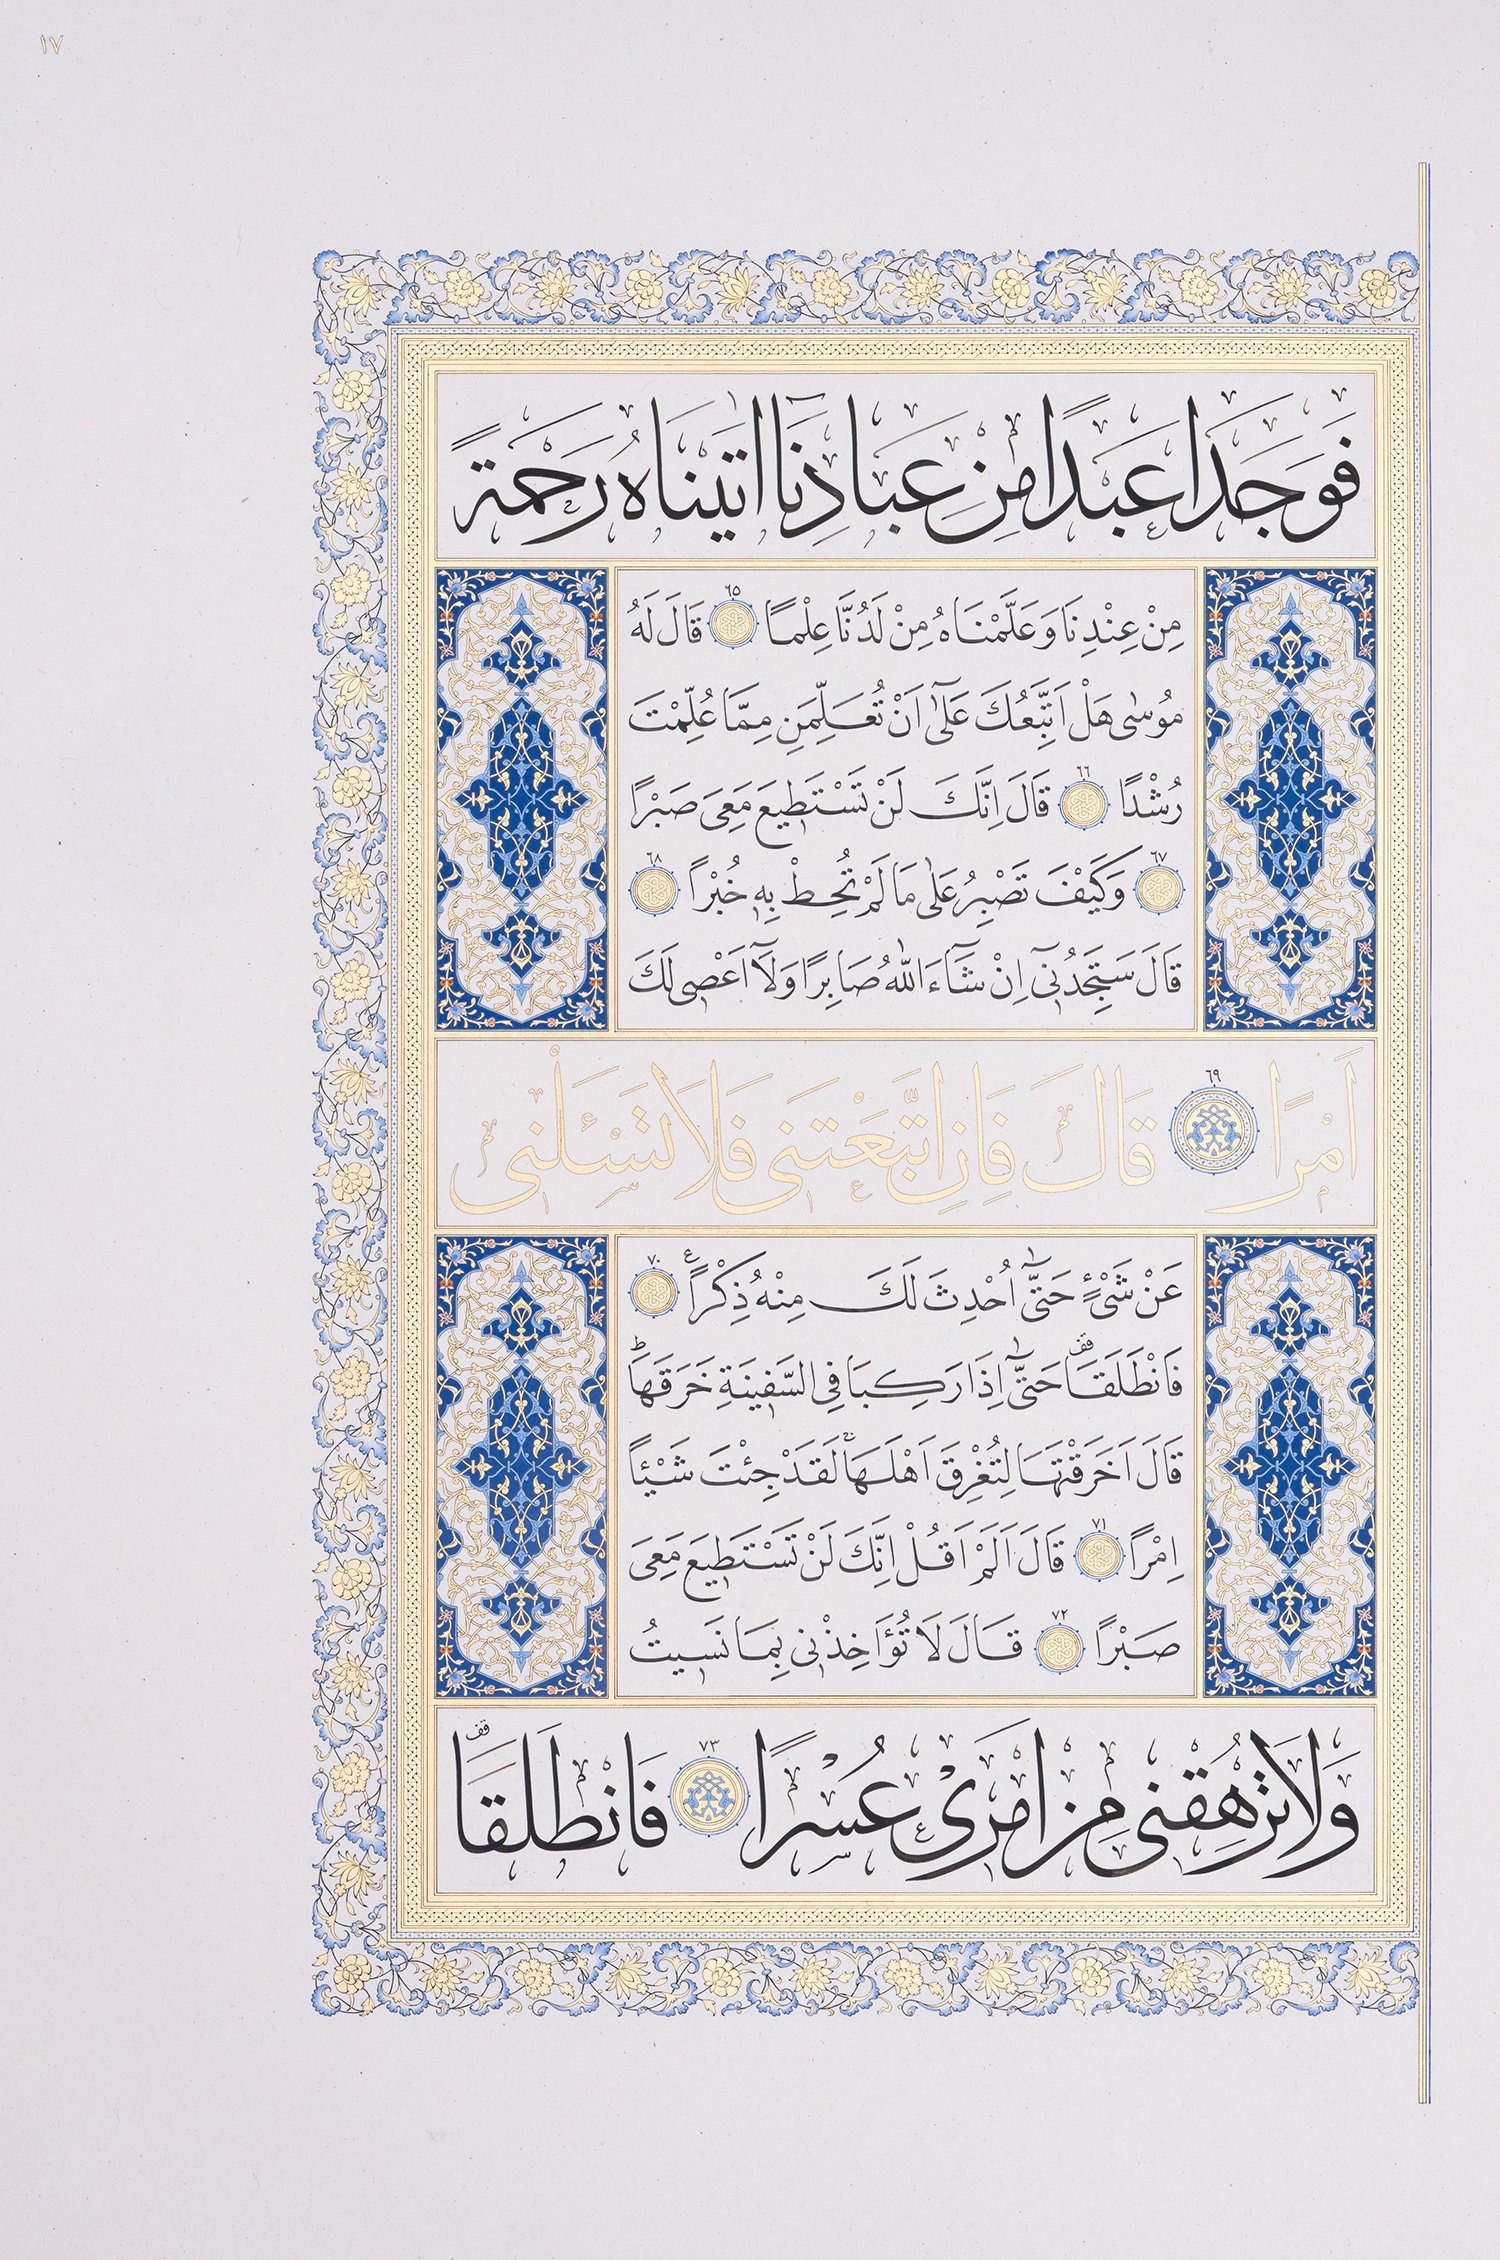 ١٧
فَوَجَدَا عَبْدًا مِنْ عِبَادِنَٓا اٰتَيْنَاهُ رَحْمَةً
مِنْ عِنْدِنَا وَعَلَّمْنَاهُ مِنْ لَدُنَّا عِلْمًا ٦٥ قَالَ لَهُ
مُوسٰى هَلْ اَتَّبِعُكَ عَلٰٓى اَنْ تُعَلِّمَنِ مِمَّا عُلِّمْتَ
رُشْدًا ٦٦ قَالَ اِنَّكَ لَنْ تَسْتَطٖيعَ مَعِىَ صَبْرًا
٦٧ وَكَيْفَ تَصْبِرُ عَلٰى مَا لَمْ تُحِطْ بِهٖ خُبْرًا ٦٨
قَالَ سَتَجِدُنٖٓى اِنْ شَٓاءَ اللّٰهُ صَابِرًا وَلَٓا اَعْصٖى لَكَ
اَمْرًا ٦٩ قَالَ فَاِنِ اتَّبَعْتَنٖى فَلَا تَسْـَٔلْنٖى
عَنْ شَىْءٍ حَتّٰٓى اُحْدِثَ لَكَ مِنْهُ ذِكْرًا ع ٧٠
فَانْطَلَقَا قف حَتّٰٓى اِذَا رَكِبَا فِى السَّفٖينَةِ خَرَقَهَا ط
قَالَ اَخَرَقْتَهَا لِتُغْرِقَ اَهْلَهَا لَقَدْ جِئْتَ شَيْـًٔا
اِمْرًا ٧١ قَالَ اَلَمْ اَقُلْ اِنَّكَ لَنْ تَسْتَطٖيعَ مَعِىَ
صَبْرًا ٧٢ قَالَ لَا تُؤَاخِذْنٖى بِمَا نَسٖيتُ
وَلَا تُرْهِقْنٖى مِنْ اَمْرٖى عُسْرًا ٧٣ فَانْطَلَقَا قف